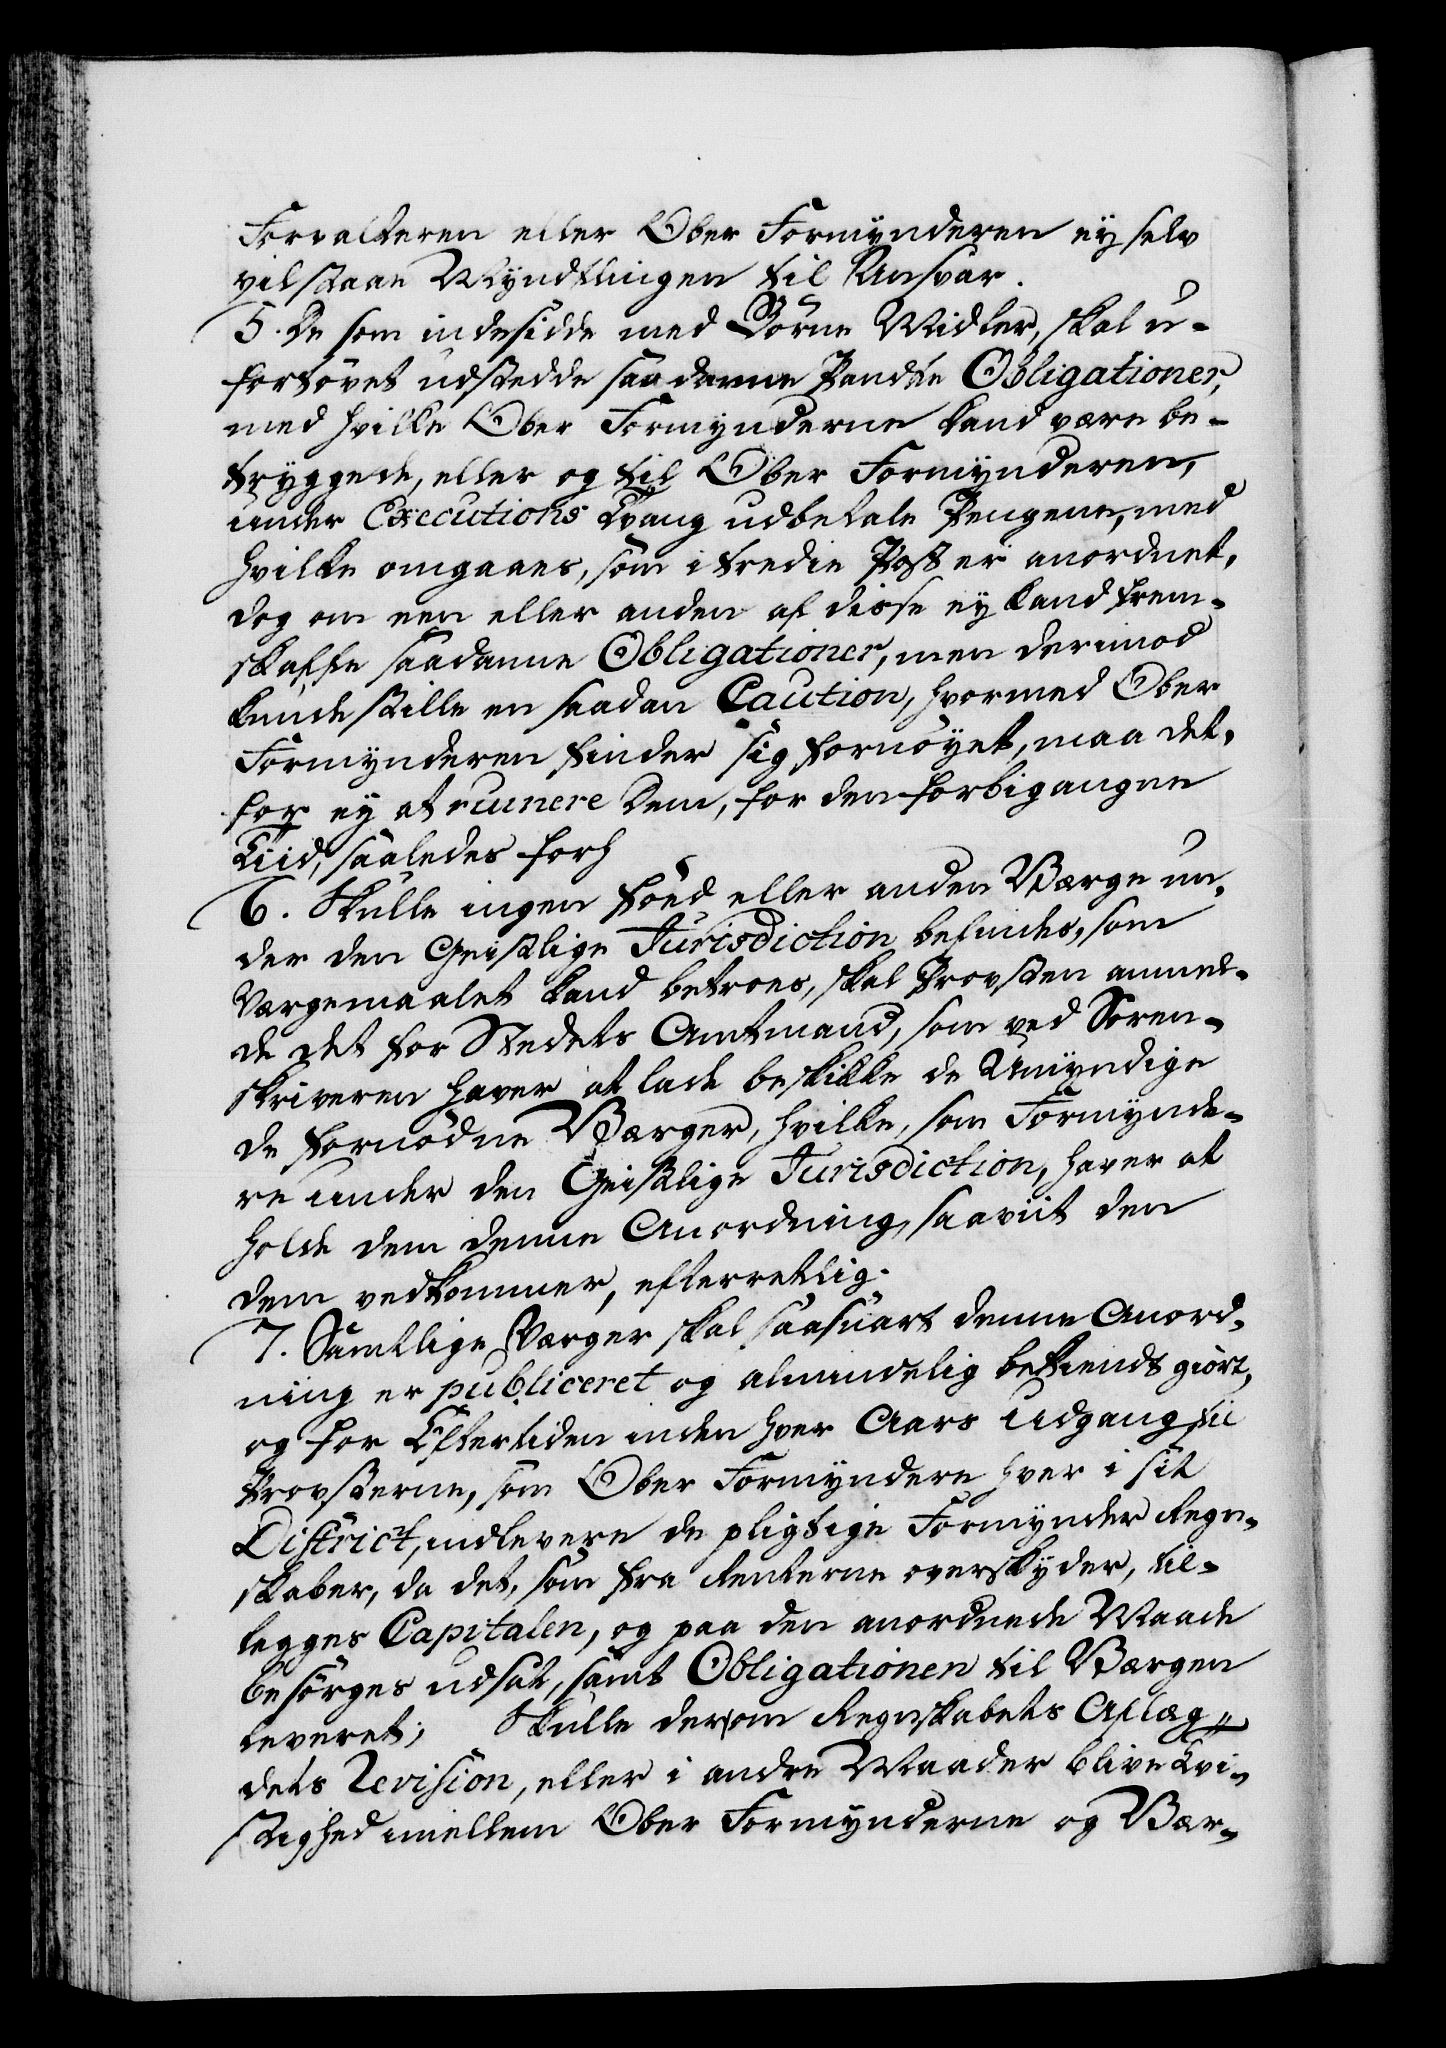 Forvalteren eller Ober Formynderen ey selv
vil staae Myndtlingen til Ansvar.
5. De som indesidde med Börne Midler, skal u-
fortövet udstedde saadanne Pandte Obligationer,
med hvilke Ober Formynderne kand være be-
tryggede, eller og til Ober Formynderen,
under Executions Tvang udbetale Pengene, med
hvilke omgaaes, som i tredie Post er anordnet,
dog om een eller anden af disse ey kand frem-
skaffe saadanne Obligationer, men derimod
kunde stille en saadan Caution, hvormed Ober
Formynderen finder sig fornöyet, maa det,
for ey at ruinere dem, for den forbigangne
Tiid, saaledes forh
6. Skulle ingen föed eller anden Værge un-
der den Geistlige Jurisdiction befindes, som
Værgemaalet kand betroes, skal Provsten anmel-
de det for Stedets Amtmand, som ved Soren-
skriveren haver at lade beskikke de Umyndige
de fornödne Værger, hvilke, som Formynde-
re under den Geistlige Jurisdiction, haver at
holde dem denne Anordning, saaviit den
dem vedkommer, efterretlig.
7. Samtlige Værger skal saasnart denne Anord-
ning er publiceret og almindelig bekiendt giört,
og for Eftertiden inden hver Aars Udgang til
Provsterne, som Ober Formyndere hver i sit
District, indlevere de pligtige Formynder Regn-
skaber, da det, som fra Renterne overskyder, til-
legges Capitalen, og paa den anordnede Maade
besörges udsat, samt Obligationen til Værgen
leveret; Skulle der om Regnskabets Aflæg
dets Revision, eller i andre Maader blive Tvi-
stighed imellem Ober Formynderne og Vær-